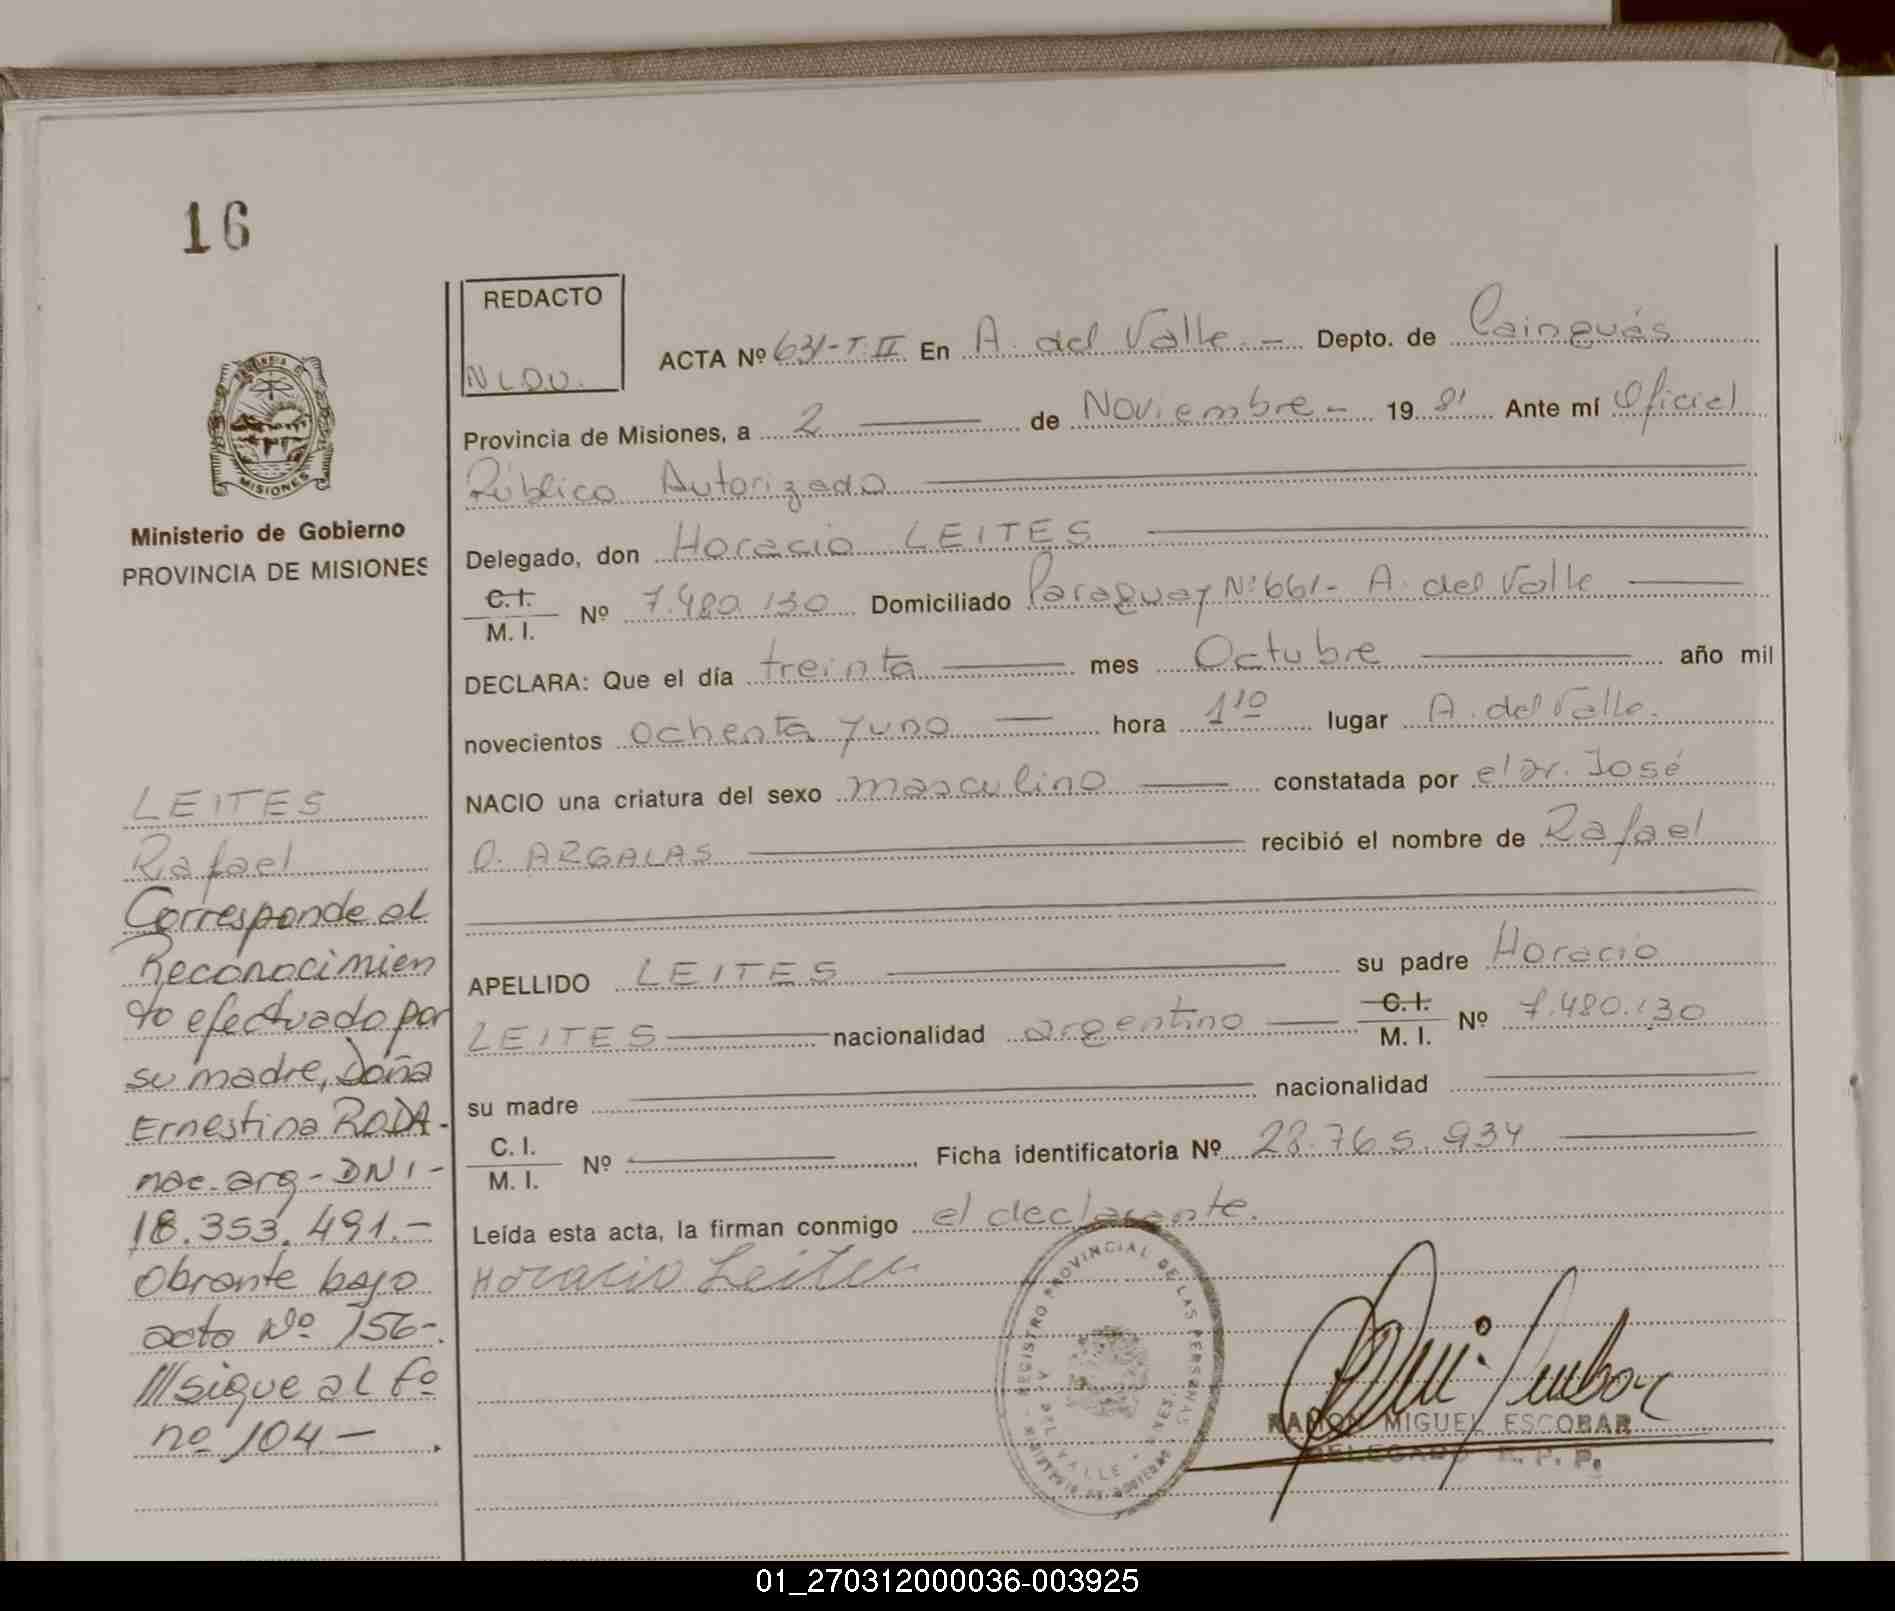 16
REDACTO
NLDU.
ACTA Nº 631-T.II En A. del Valle.- Depto. de Cainguás
Provincia de Misiones, a 2 de Noviembre- 19 81 Ante mí Oficial
Público Autorizado
Delegado, don Horacio LEITES
C.I.
M. I. Nº 7.480.130 Domiciliado Paraguay Nº 661- A. del Valle
DECLARA: Que el día treinta mes Octubre año mil
novecientos ochenta y uno hora 1 10 lugar A. del Valle.
NACIO una criatura del sexo masculino constatada por el dr. José
O. ARGALAS recibió el nombre de Rafael
APELLIDO LEITES su padre Horacio
LEITES nacionalidad argentino C.I.
M. I. Nº 7.480.130
su madre nacionalidad
C. I.
M. I. Nº Ficha identificatoria Nº 28.765.934
Leída esta acta, la firman conmigo el declarante.
Horacio Leites
REGISTRO PROVINCIAL DE LAS PERSONAS
RAMON MIGUEL ESCOBAR
DELEGADO R. P. P.
MISIONES
Ministerio de Gobierno
PROVINCIA DE MISIONES
LEITES
Rafael
Corresponde al
Reconocimien
to efectuado por
su madre, Doña
Ernestina RODA-
nac. arg-DNI-
18.353.491.-
Obrante bajo
acta Nº 156-.
///sigue al fº
nº 104-
01_270312000036-003925